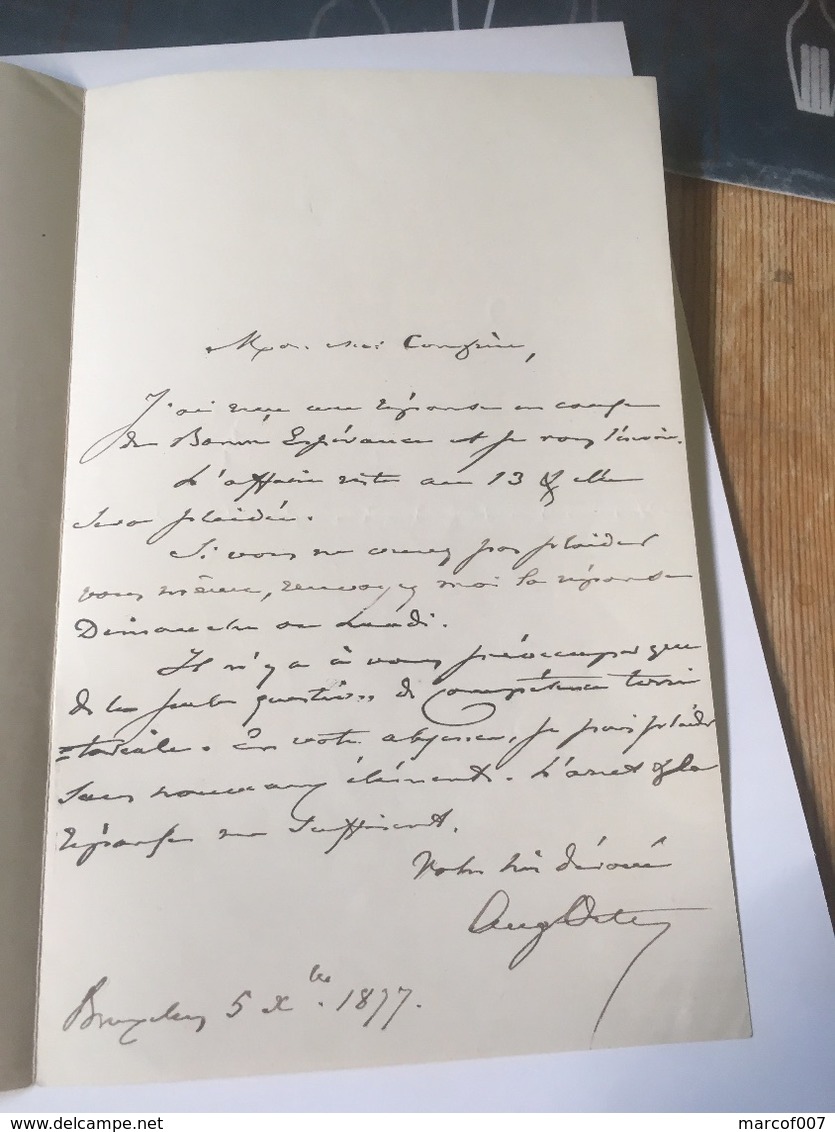 Mon cher Confrère,
J'ai reçu une réponse en cause
de Bonne Espérance et je vous l'envoie.
L'affaire reste au 13 & elle
sera plaidée.
Si vous ne venez pas plaider
vous même, renvoyez moi la réponse
Dimanche ou Lundi.
Il n'y a à vous préoccuper que
de la seule question de Compétence terri
=toriale. En votre absence, je puis plaider
sans nouveaux éléments. L'arret & la
réponse me suffisent.
Votre très dévoué
Aug
Bruxelles 5 Xbre. 1877.
www.delcampe.net
marcof007